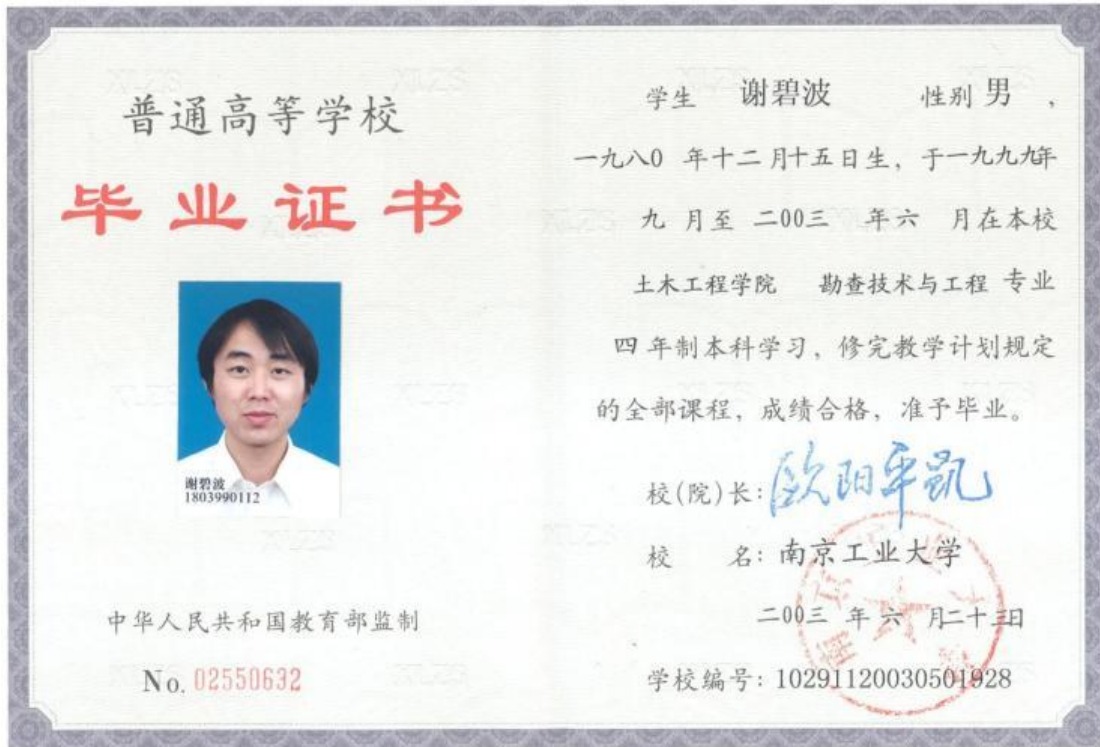 普通高等学校
毕业证书
谢碧波
1803990112
中华人民共和国教育部监制
No. 02550632
学生 谢碧波 性别 男 ，
一九八0 年十二月十五日生，于一九九九年
九 月至 二00三 年六 月在本校
土木工程学院 勘查技术与工程 专业
四 年制本科学习，修完教学计划规定
的全部课程，成绩合格，准予毕业。
校(院)长：欧阳平凯
校 名：南京工业大学
二00三 年 六 月二十三日
学校编号：10291120030501928